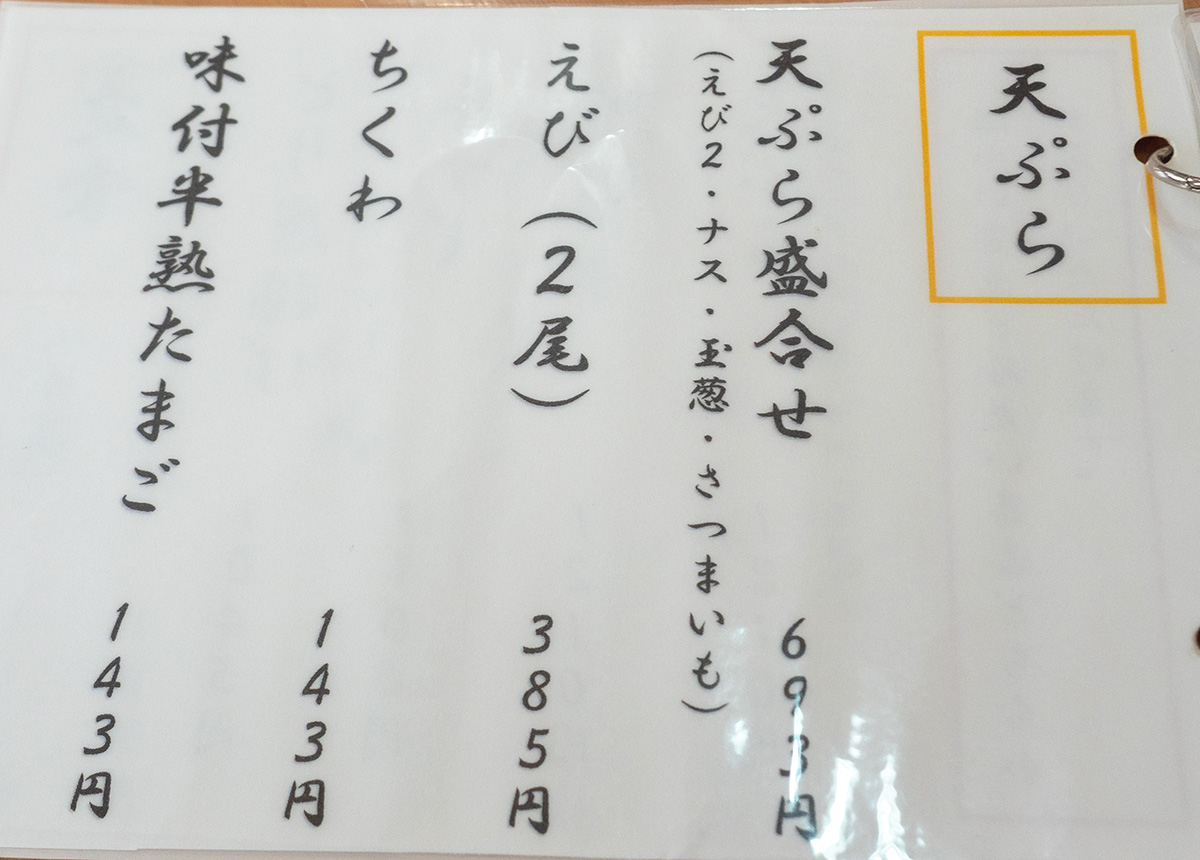 天ぷら
天ぷら盛合せ 693円
(えび2・ナス・玉葱・さつまいも)
えび(2尾) 385円
ちくわ 143円
味付半熟たまご 143円